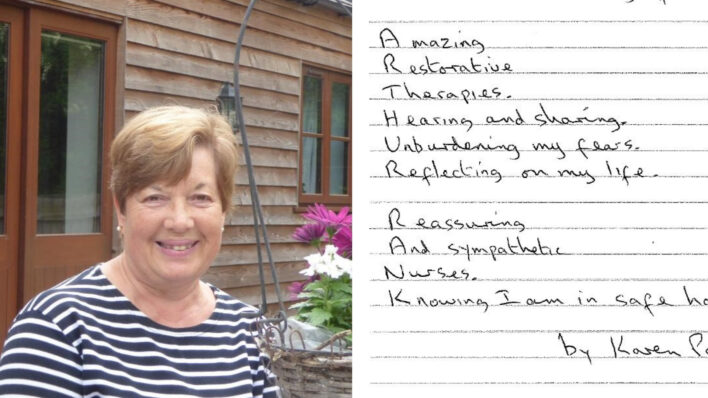 Amazing
Restorative
Therapies.
Hearing and sharing.
Unburdening my fears.
Reflecting on my life.
Reassuring
And sympathetic
Nurses.
Knowing I am in safe
by Karen